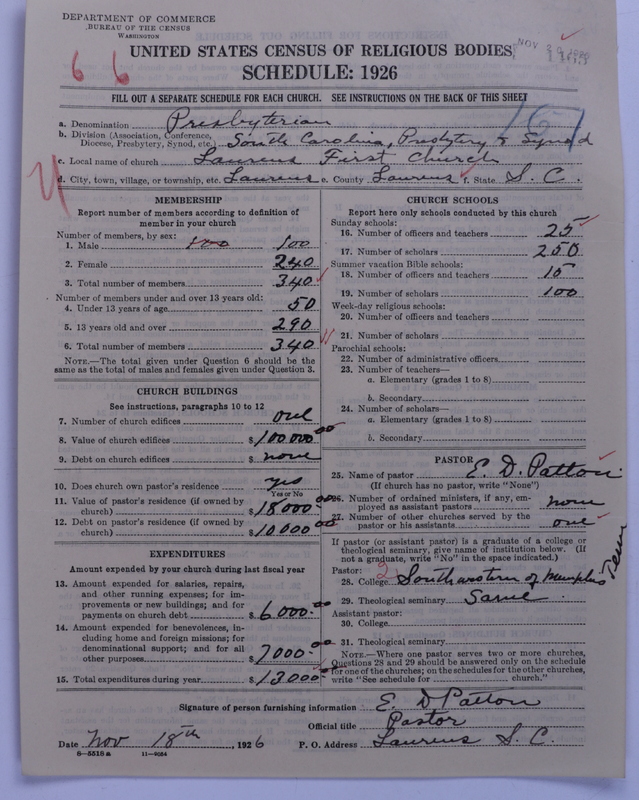 DEPARTMENT OF COMMERCE
BUREAU OF THE CENSUS
WASHINGTON
UNITED STATES CENSUS OF RELIGIOUS BODIES
NOV
SCHEDULE: 1926
6 6
FILL OUT A SEPARATE SCHEDULE FOR EACH CHURCH. SEE INSTRUCTIONS ON THE BACK OF THIS SHEET
a. Denomination Presbyterian
b. Division (Association, Conference, Diocese, Presbytery, Synod, etc.) South Carolina, Presbytery & Synod
c. Local name of church Laurens First Church
d. City, town, village, or township, etc. Laurens e. County Laurens f. State S. C.
MEMBERSHIP
Report number of members according to definition of
member in your church
Number of members, by sex:
1. Male 100 100
2. Female 240
3. Total number of members 340
Number of members under and over 13 years old:
4. Under 13 years of age 50
5. 13 years old and over 290
6. Total number of members 340
NOTE.—The total given under Question 6 should be
same as the total of males and females given under Question 3.
CHURCH BUILDINGS
See instructions, paragraphs 10 to 12
7. Number of church edifices one
8. Value of church edifices $100.000.00
9. Debt on church edifices $ none
10. Does church own pastor's residence? yes
Yes or No
11. Value of pastor's residence (if owned by
church) $18.000.00
12. Debt on pastor's residence (if owned by
church) $10.000.00
EXPENDITURES
Amount expended by your church during last fiscal year
13. Amount expended for salaries, repairs,
and other running expenses; for im-
provements or new buildings; and for
payments on church debt $6.000.00
14. Amount expended for benevolences, in-
cluding home and foreign missions; for
denominational support; and for all
other purposes $7000.00
15. Total expenditures during year $13.000.00
CHURCH SCHOOLS
Report here only schools conducted by this church
Sunday schools:
16. Number of officers and teachers 25
17. Number of scholars 250
Summer vacation Bible schools:
18. Number of officers and teachers 15
19. Number of scholars 100
Week-day religious schools:
20. Number of officers and teachers
21. Number of scholars
Parochial schools:
22. Number of administrative officers
23. Number of teachers—
a. Elementary (grades 1 to 8)
b. Secondary
24. Number of scholars—
a. Elementary (grades 1 to 8)
b. Secondary
PASTOR
25. Name of pastor E. D. Patton
(If church has no pastor, write "None")
26. Number of ordained ministers, if any, em-
ployed as assistant pastors none
27. Number of other churches served by the
pastor or his assistants one
If pastor (or assistant pastor) is a graduate of a college or
theological seminary, give name of institution below. (If
not a graduate, write "No" in the space indicated.)
Pastor: 2
28. College Southwestern of Memphis Tenn
29. Theological seminary Same
Assistant pastor:
30. College
31. Theological seminary
NOTE.—Where one pastor serves two or more churches,
Questions 28 and 29 should be answered only on the schedule
for one of the churches; on the schedules for the other churches,
write "See schedule for church."
Signature of person furnishing information E. D Patton
Official title Pastor
Date Nov 18th, 1926 P. O. Address Laurens S. C.
8—5518 a 11—9084